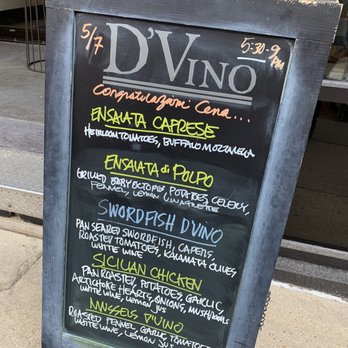 5/7
D'VINO
5-30-9PM
Congratulazioni Cena...
ENSALATA CAPRESE
HEIRLOOM TOMATOES, BUFFALO MOZZARELLA
ENSALATA di POLPO
GRILLED BABY OCTOPUS, POTATOES, CELERY,
FENNEL, LEMON VINAIGRETTE
SWORDFISH DVINO
PAN SEARED SWORDFISH, CAPERS,
ROASTED TOMATOES, KALAMATA OLIVES
WHITE WINE
SICILIAN CHICKEN
PAN ROASTED, POTATOES, GARLIC,
ARTICHOKE HEARTS, ONIONS, MUSHROOMS
WHITE WINE, LEMON JUS
MUSSELS D'VINO
ROASTED FENNEL, GARLIC, TOMATOES
WHITE WINE, LEMON JUS